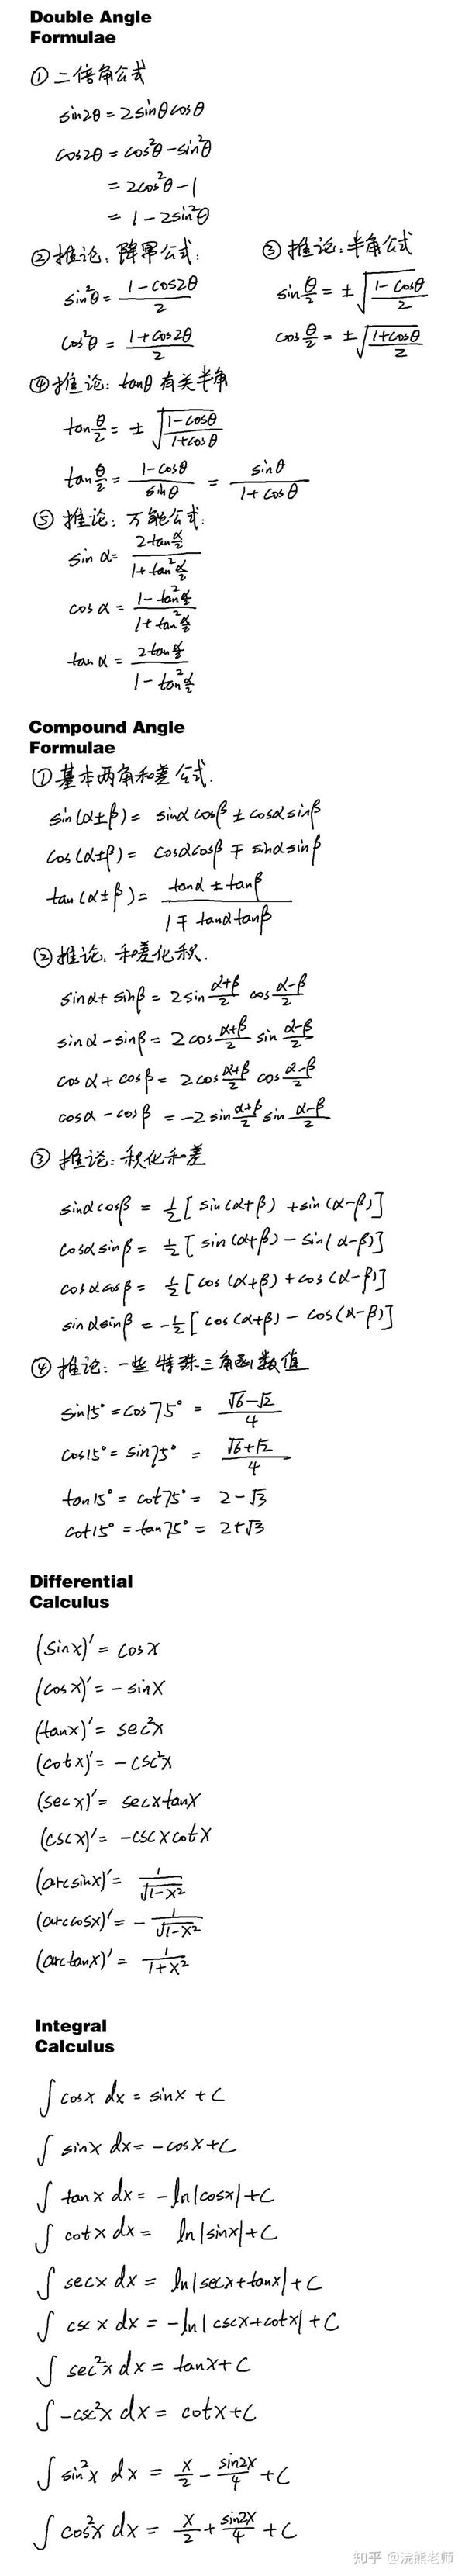 Double Angle
Formulae
① 二倍角公式
sin2θ = 2sinθcosθ
cos2θ = cos²θ-sin²θ
= 2cos²θ-1
= 1-2sin²θ
② 推论: 降幂公式:
sin²θ = (1-cos2θ)/2
cos²θ = (1+cos2θ)/2
③ 推论: 半角公式
sin θ/2 = ±√((1-cosθ)/2)
cos θ/2 = ±√((1+cosθ)/2)
④ 推论: tanθ 有关半角
tan θ/2 = ± √((1-cosθ)/(1+cosθ))
tan θ/2 = (1-cosθ)/sinθ = sinθ/(1+cosθ)
⑤ 推论: 万能公式:
sin α = (2tan α/2)/(1+tan² α/2)
cos α = (1-tan² α/2)/(1+tan² α/2)
tan α = (2tan α/2)/(1-tan² α/2)
Compound Angle
Formulae
① 基本两角和差公式.
sin(α±β) = sinαcosβ ± cosαsinβ
cos(α±β) = cosαcosβ ∓ sinαsinβ
tan(α±β) = (tanα ± tanβ)/(1 ∓ tanαtanβ)
② 推论: 和差化积.
sinα + sinβ = 2sin (α+β)/2 cos (α-β)/2
sinα - sinβ = 2cos (α+β)/2 sin (α-β)/2
cosα + cosβ = 2cos (α+β)/2 cos (α-β)/2
cosα - cosβ = -2sin (α+β)/2 sin (α-β)/2
③ 推论: 积化和差
sinαcosβ = ½[sin(α+β) + sin(α-β)]
cosαsinβ = ½[sin(α+β) - sin(α-β)]
cosαcosβ = ½[cos(α+β) + cos(α-β)]
sinαsinβ = -½[cos(α+β) - cos(α-β)]
④ 推论: 一些特殊三角函数值
sin15° = cos75° = (√6-√2)/4
cos15° = sin75° = (√6+√2)/4
tan15° = cot75° = 2-√3
cot15° = tan75° = 2+√3
Differential
Calculus
(sinx)' = cosx
(cosx)' = -sinx
(tanx)' = sec²x
(cotx)' = -csc²x
(secx)' = secxtanx
(cscx)' = -cscxcotx
(arcsinx)' = 1/√(1-x²)
(arccosx)' = -1/√(1-x²)
(arctanx)' = 1/(1+x²)
Integral
Calculus
∫ cosx dx = sinx + C
∫ sinx dx = -cosx + C
∫ tanx dx = -ln|cosx| + C
∫ cotx dx = ln|sinx| + C
∫ secx dx = ln|secx+tanx| + C
∫ cscx dx = -ln|cscx+cotx| + C
∫ sec²x dx = tanx + C
∫ -csc²x dx = cotx + C
∫ sin²x dx = x/2 - sin2x/4 + C
∫ cos²x dx = x/2 + sin2x/4 + C
知乎 @浣熊老师